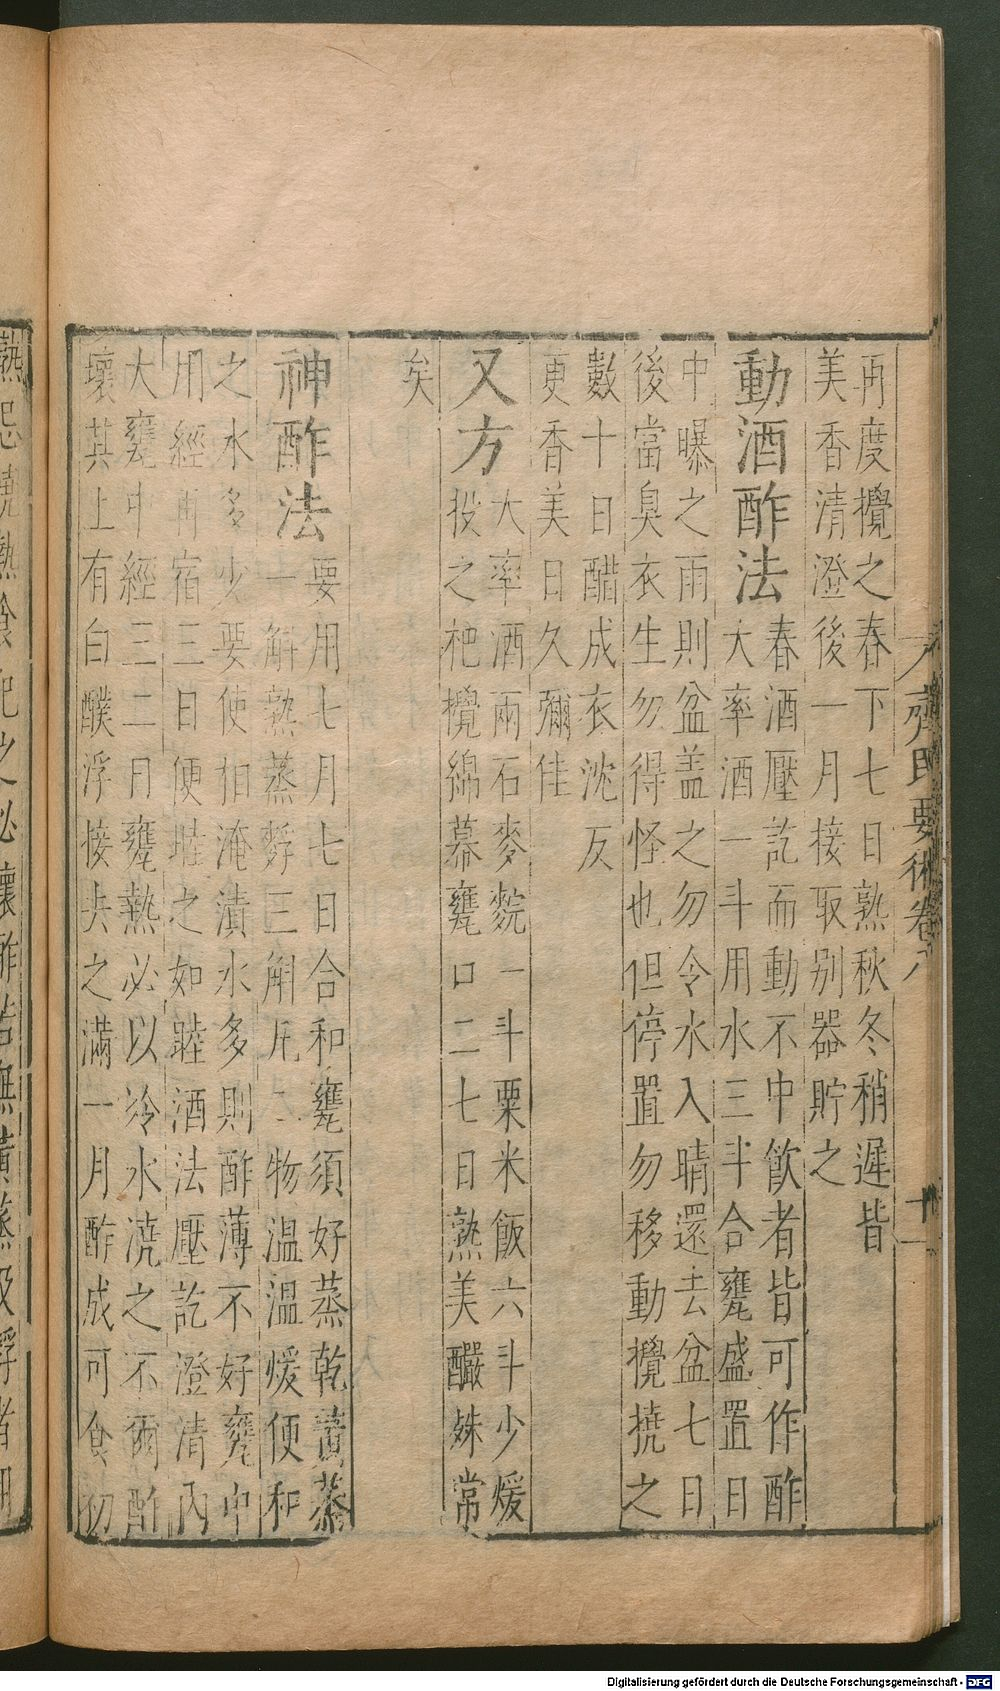 再度攪之春下七日熟秋冬稍遲皆
美香清澄後一月接取別器貯之
動酒酢法
春酒壓訖而動不中飲者皆可作酢
大率酒一斗用水三斗合甕盛置日
中曝之雨則盆盖之勿令水入晴還去盆七日
後當臭衣生勿得怪也但停置勿移動攪撓之
數十日醋成衣沈反
更香美日久彌佳
又方
大率酒兩石麥䴷一斗粟米飯六斗少煖
投之杷攪綿幕甕口二七日熟美釅姝常
矣
神酢法
要用七月七日合和甕須好蒸乾黃蒸
一斛熟蒸麩三斛凡二物温温煖便和
之水多少要使相淹漬水多則酢薄不好甕中
用經宿三日便壓之如壓酒法壓訖澄清内
大甕中經三二日甕熱必以冷水澆之不爾酢
壞其上有白醭浮接去之滿一月酢成可食初
齊民要術卷八
十一
熱壞酢若無黃蒸及浮者用
Digitalisierung gefördert durch die Deutsche Forschungsgemeinschaft - DFG